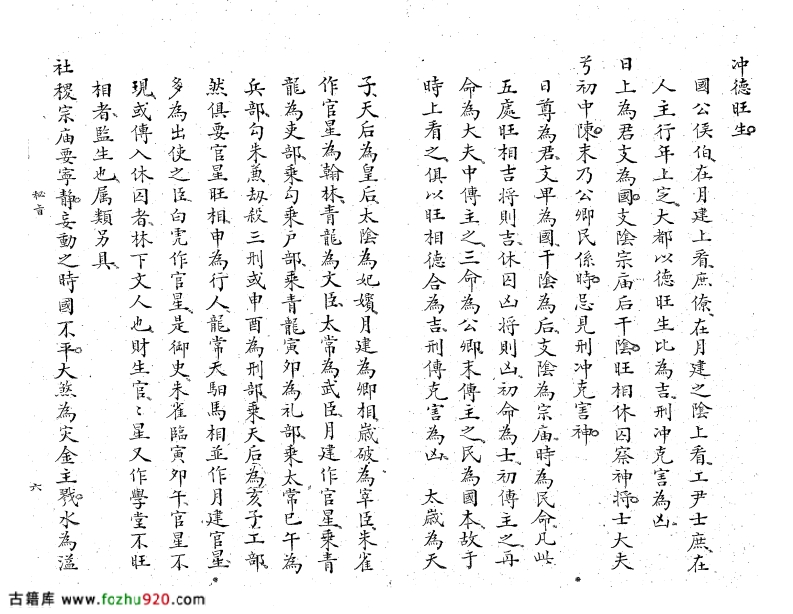 冲德旺生
國公侯伯在月建上看庶僚在月建之陰上看工尹士庶在
人主行年上定大都以德旺生比為吉刑冲克害為凶
日上為君支為國支陰宗庙后干陰旺相休囚察神將士大夫
兮初中陳末乃公卿民係時忌見刑冲克害神
日尊為君支卑為國干陰為后支陰為宗庙時為民命凡此
五處旺相吉將則吉休囚凶將則凶初命為士初傳主之再
命為大夫中傳主之三命為公卿末傳主之民為國本故于
時上看之俱以旺相德合為吉刑傳克害為凶 太嵗為天
子天后為皇后太陰為妃嬪月建為卿相嵗破為宰臣朱雀
作官星為翰林青龍為文臣太常為武臣月建作官星乘青
龍為吏部乘勾乘户部乘青龍寅卯為礼部乘太常巳午為
兵部勾朱蒹劫殺三刑或申酉為刑部乘天后為亥子工部
然俱要官星旺相申為行人龍常天馹馬相並作月建官星
多為出使之臣白虎作官星是御史朱雀臨寅卯午官星不
現或傳入休囚者林下文人也財生官〻星又作學堂不旺
相者監生也属類另具
社稷宗庙要寧静妄動之時國不平大煞為灾金主戮水為溢
秘音
六
古籍库 www.fozhu920.com